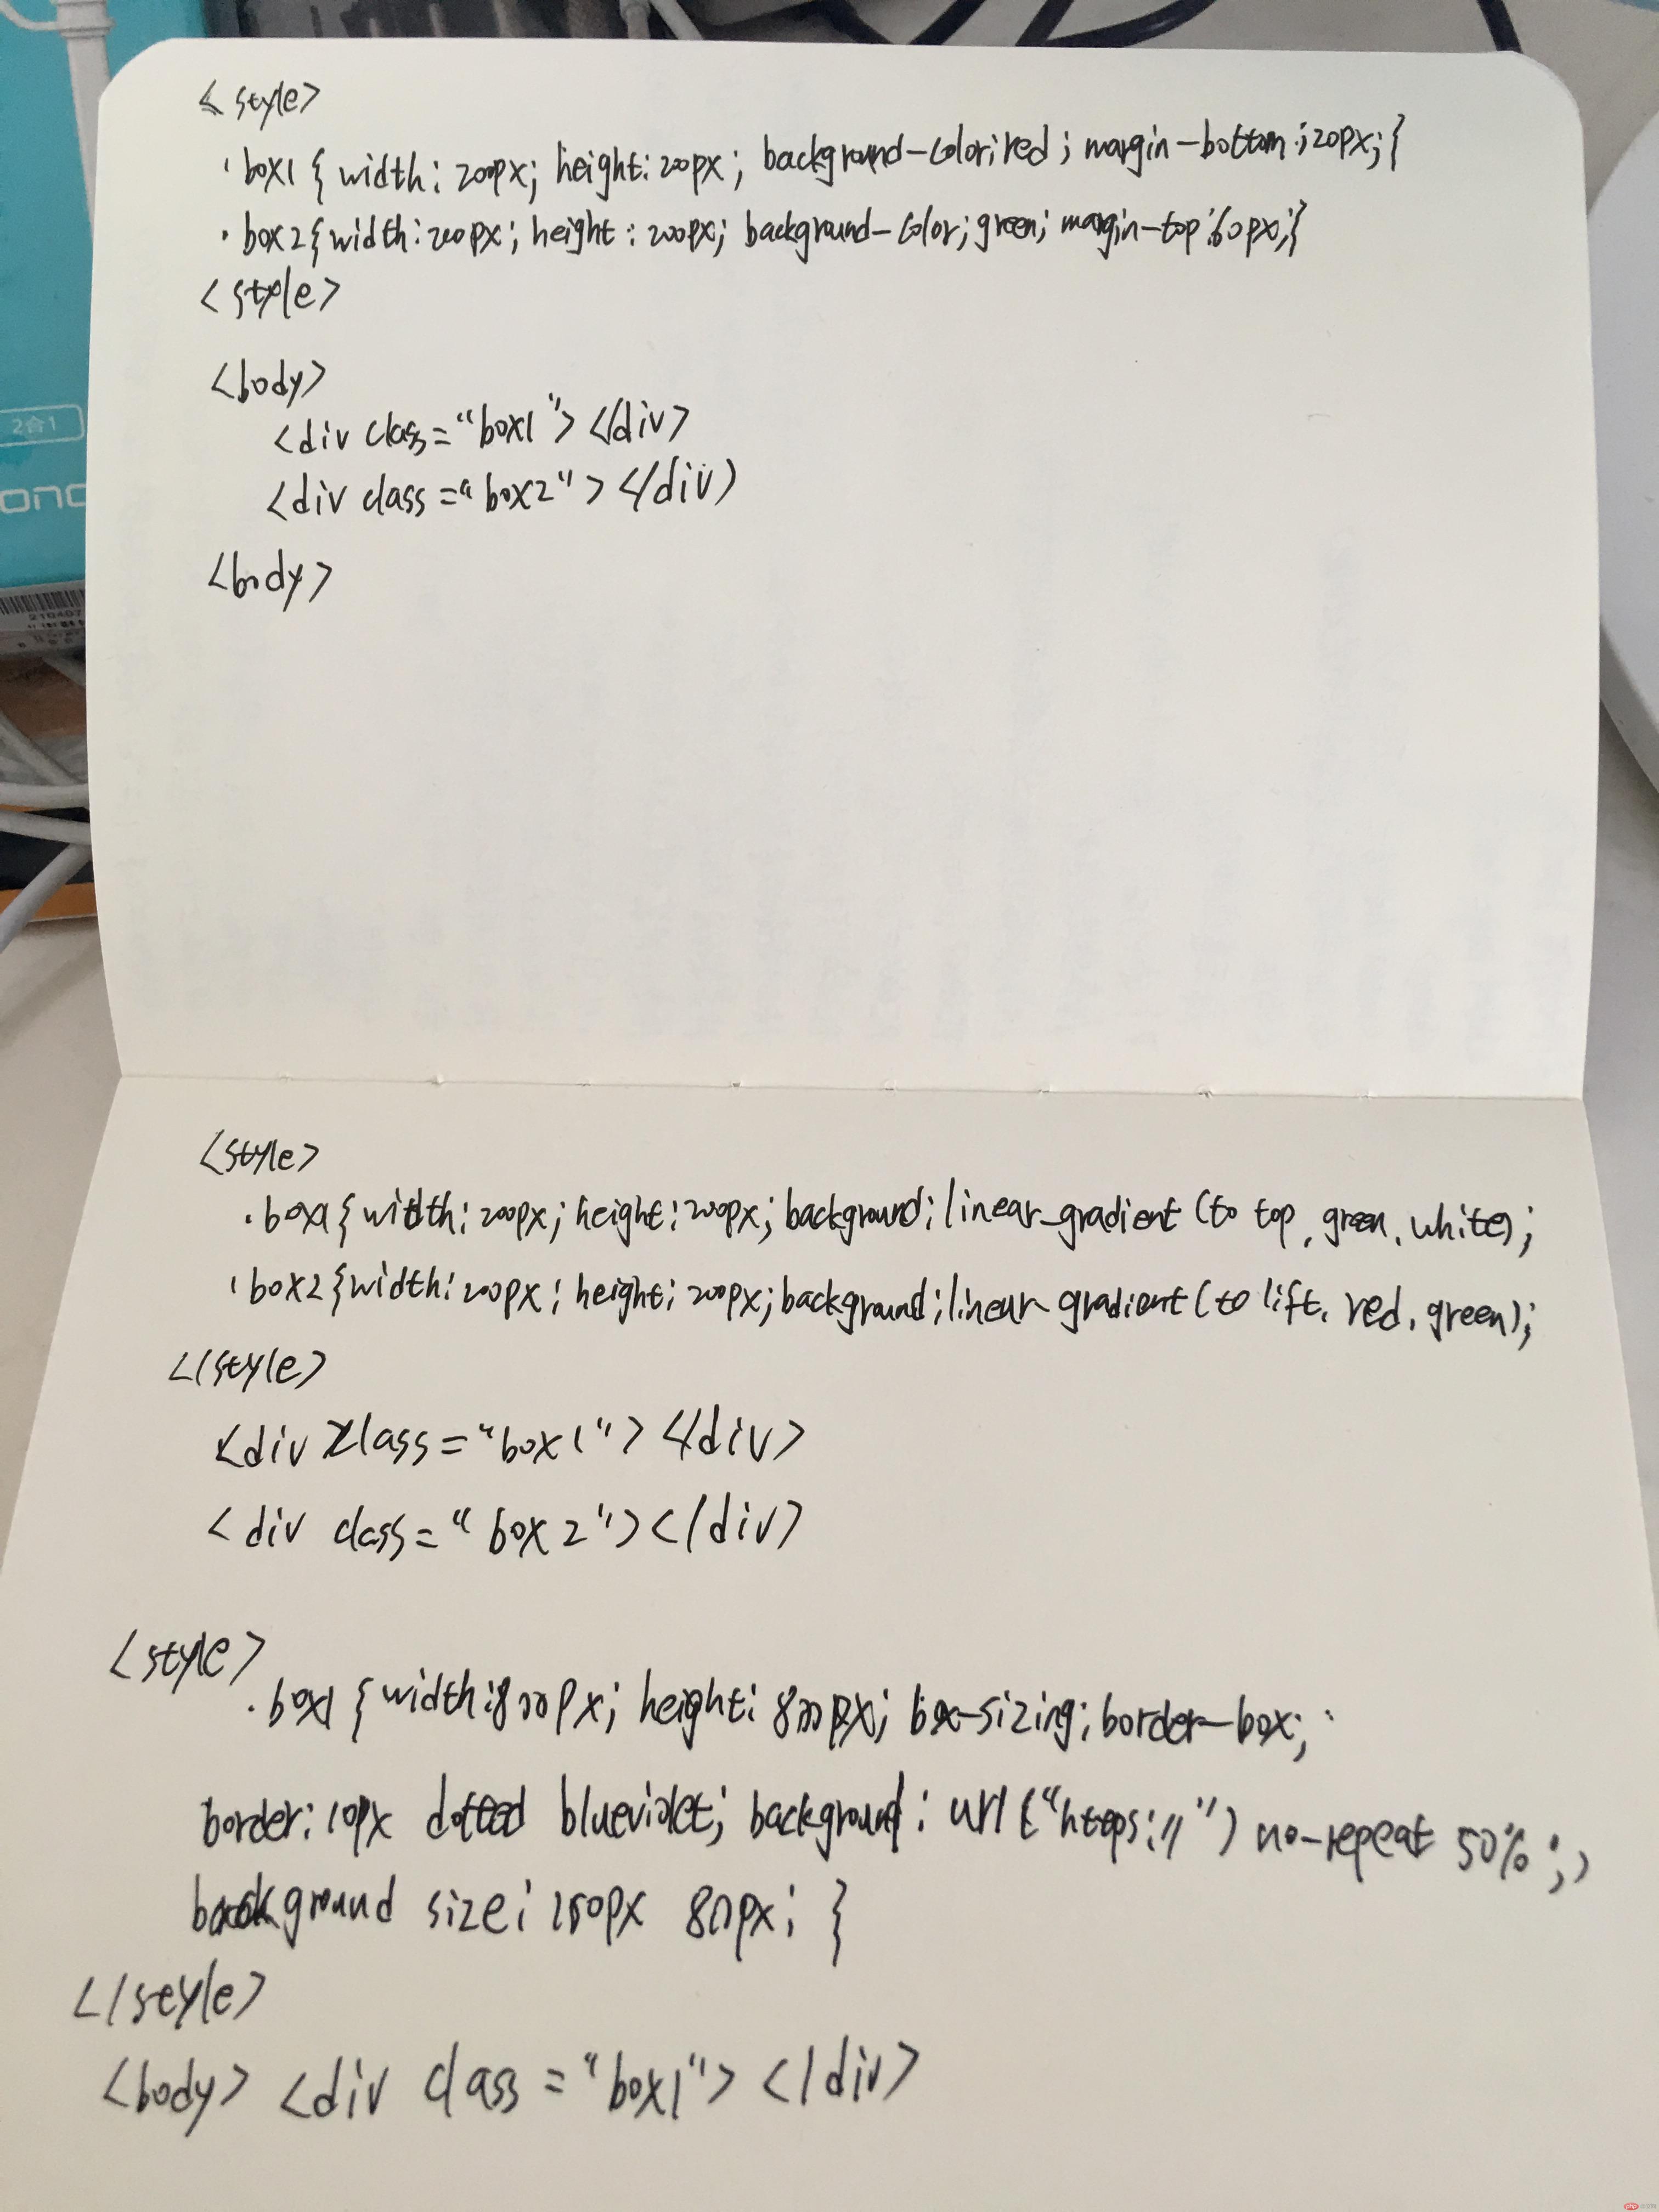 <style>
.box1 { width: 200px; height: 200px; background-color: red; margin-bottom: 20px; }
.box2 { width: 200px; height: 200px; background-color; green; margin-top: 60px; }
<style>
<body>
<div class="box1"> </div>
<div class="box2"> </div>
<body>
2合1
210407
<style>
.box1 { width: 200px; height: 200px; background: linear-gradient (to top, green, white);
.box2 { width: 200px; height: 200px; background: linear-gradient (to lift, red, green);
</style>
<div class="box1"> </div>
<div class="box2"> </div>
<style>
.box1 { width: 800px; height: 800px; box-sizing: border-box;
border: 10px dotted blueviolet; background: url ("https://") no-repeat 50%;
background size: 150px 80px; }
</style>
<body> <div class="box1"> </div>
php